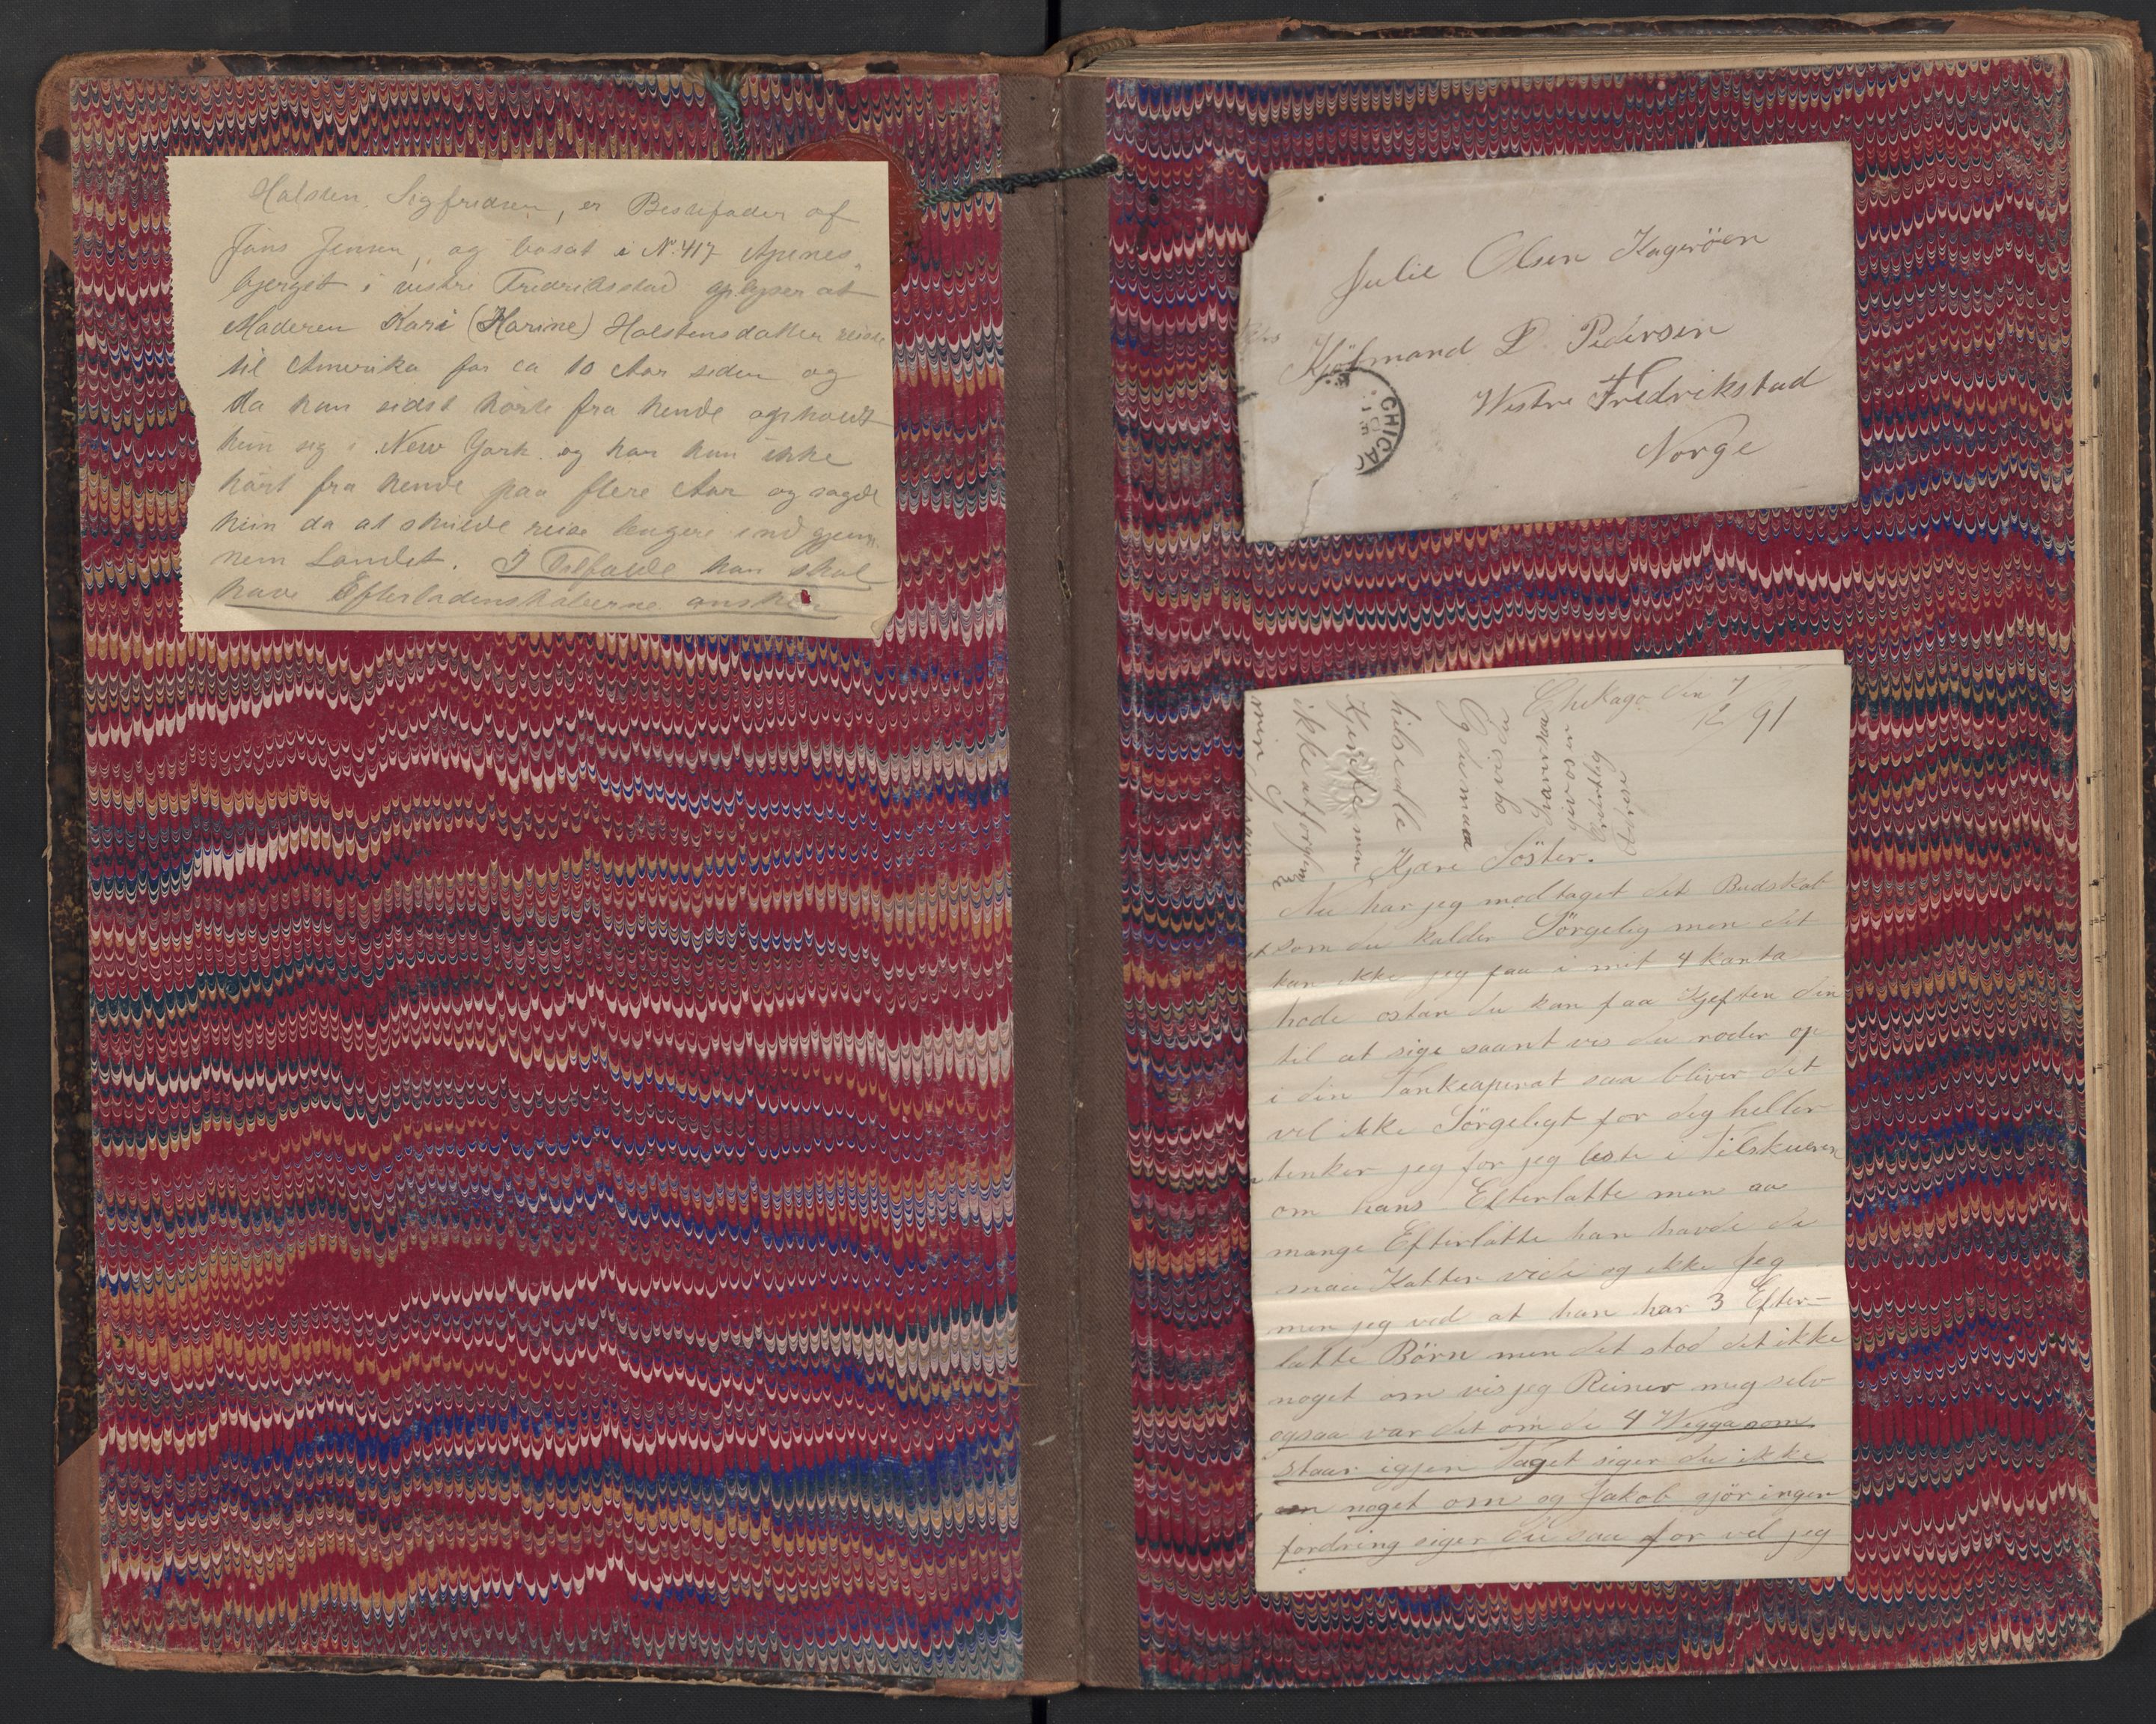 Halsten Sigfredsen, er Bestefader af
Jens Jensen, og bosat i No. 417 Apenes-
bjerget i vestre Fredriksstad oplyser at
Moderen Kari (Karine) Halstensdatter reiste
til Amerika for ca 10 Aar siden og
da han sidst hørte fra hende opholdt
hun sig i New York og har han ikke
hørt fra hende paa flere Aar og sagde
hun da at skulde reise længere ind gjen-
nem Landet. I Tilfælde han skal
have Efterladenskaberne ønsker
Julie Olsen Kagerøen
Kjøbmand P. Pedersen
Westre Fredrikstad
Norge
CHICAGO
DE
Chekago den 7/12 91
Og vis du
skriver saa
giv os en
Ordentlig
Adrese
Og du maa
hilse alle
Kjente men
ikke at forglem
Kjære Söster.
Nu har jeg modtaget det Budskab
som du kalder Sörgelig men det
kan ikke jeg faa i mit 4 kanta
hode ostan du kan faa Kjeften din
til at sige saant vis du roder op
i din Tankeaperat saa bliver det
vel ikke Sörgeligt for dig heller
tenker jeg for jeg leste i Tilskueren
om hans Efterlatte men aa
mange Efterlatte han havde de
maa Katten vide og ikke Jeg
men jeg ved at han har 3 Efter-
latte Börn men det stod det ikke
noget om vis jeg Reiner meg selv
ogsaa var det om de 4 Wegga som
staar igjen Taget siger du ikke
noget om og Jakob gjör ingen
fordring siger du saa for vel jeg